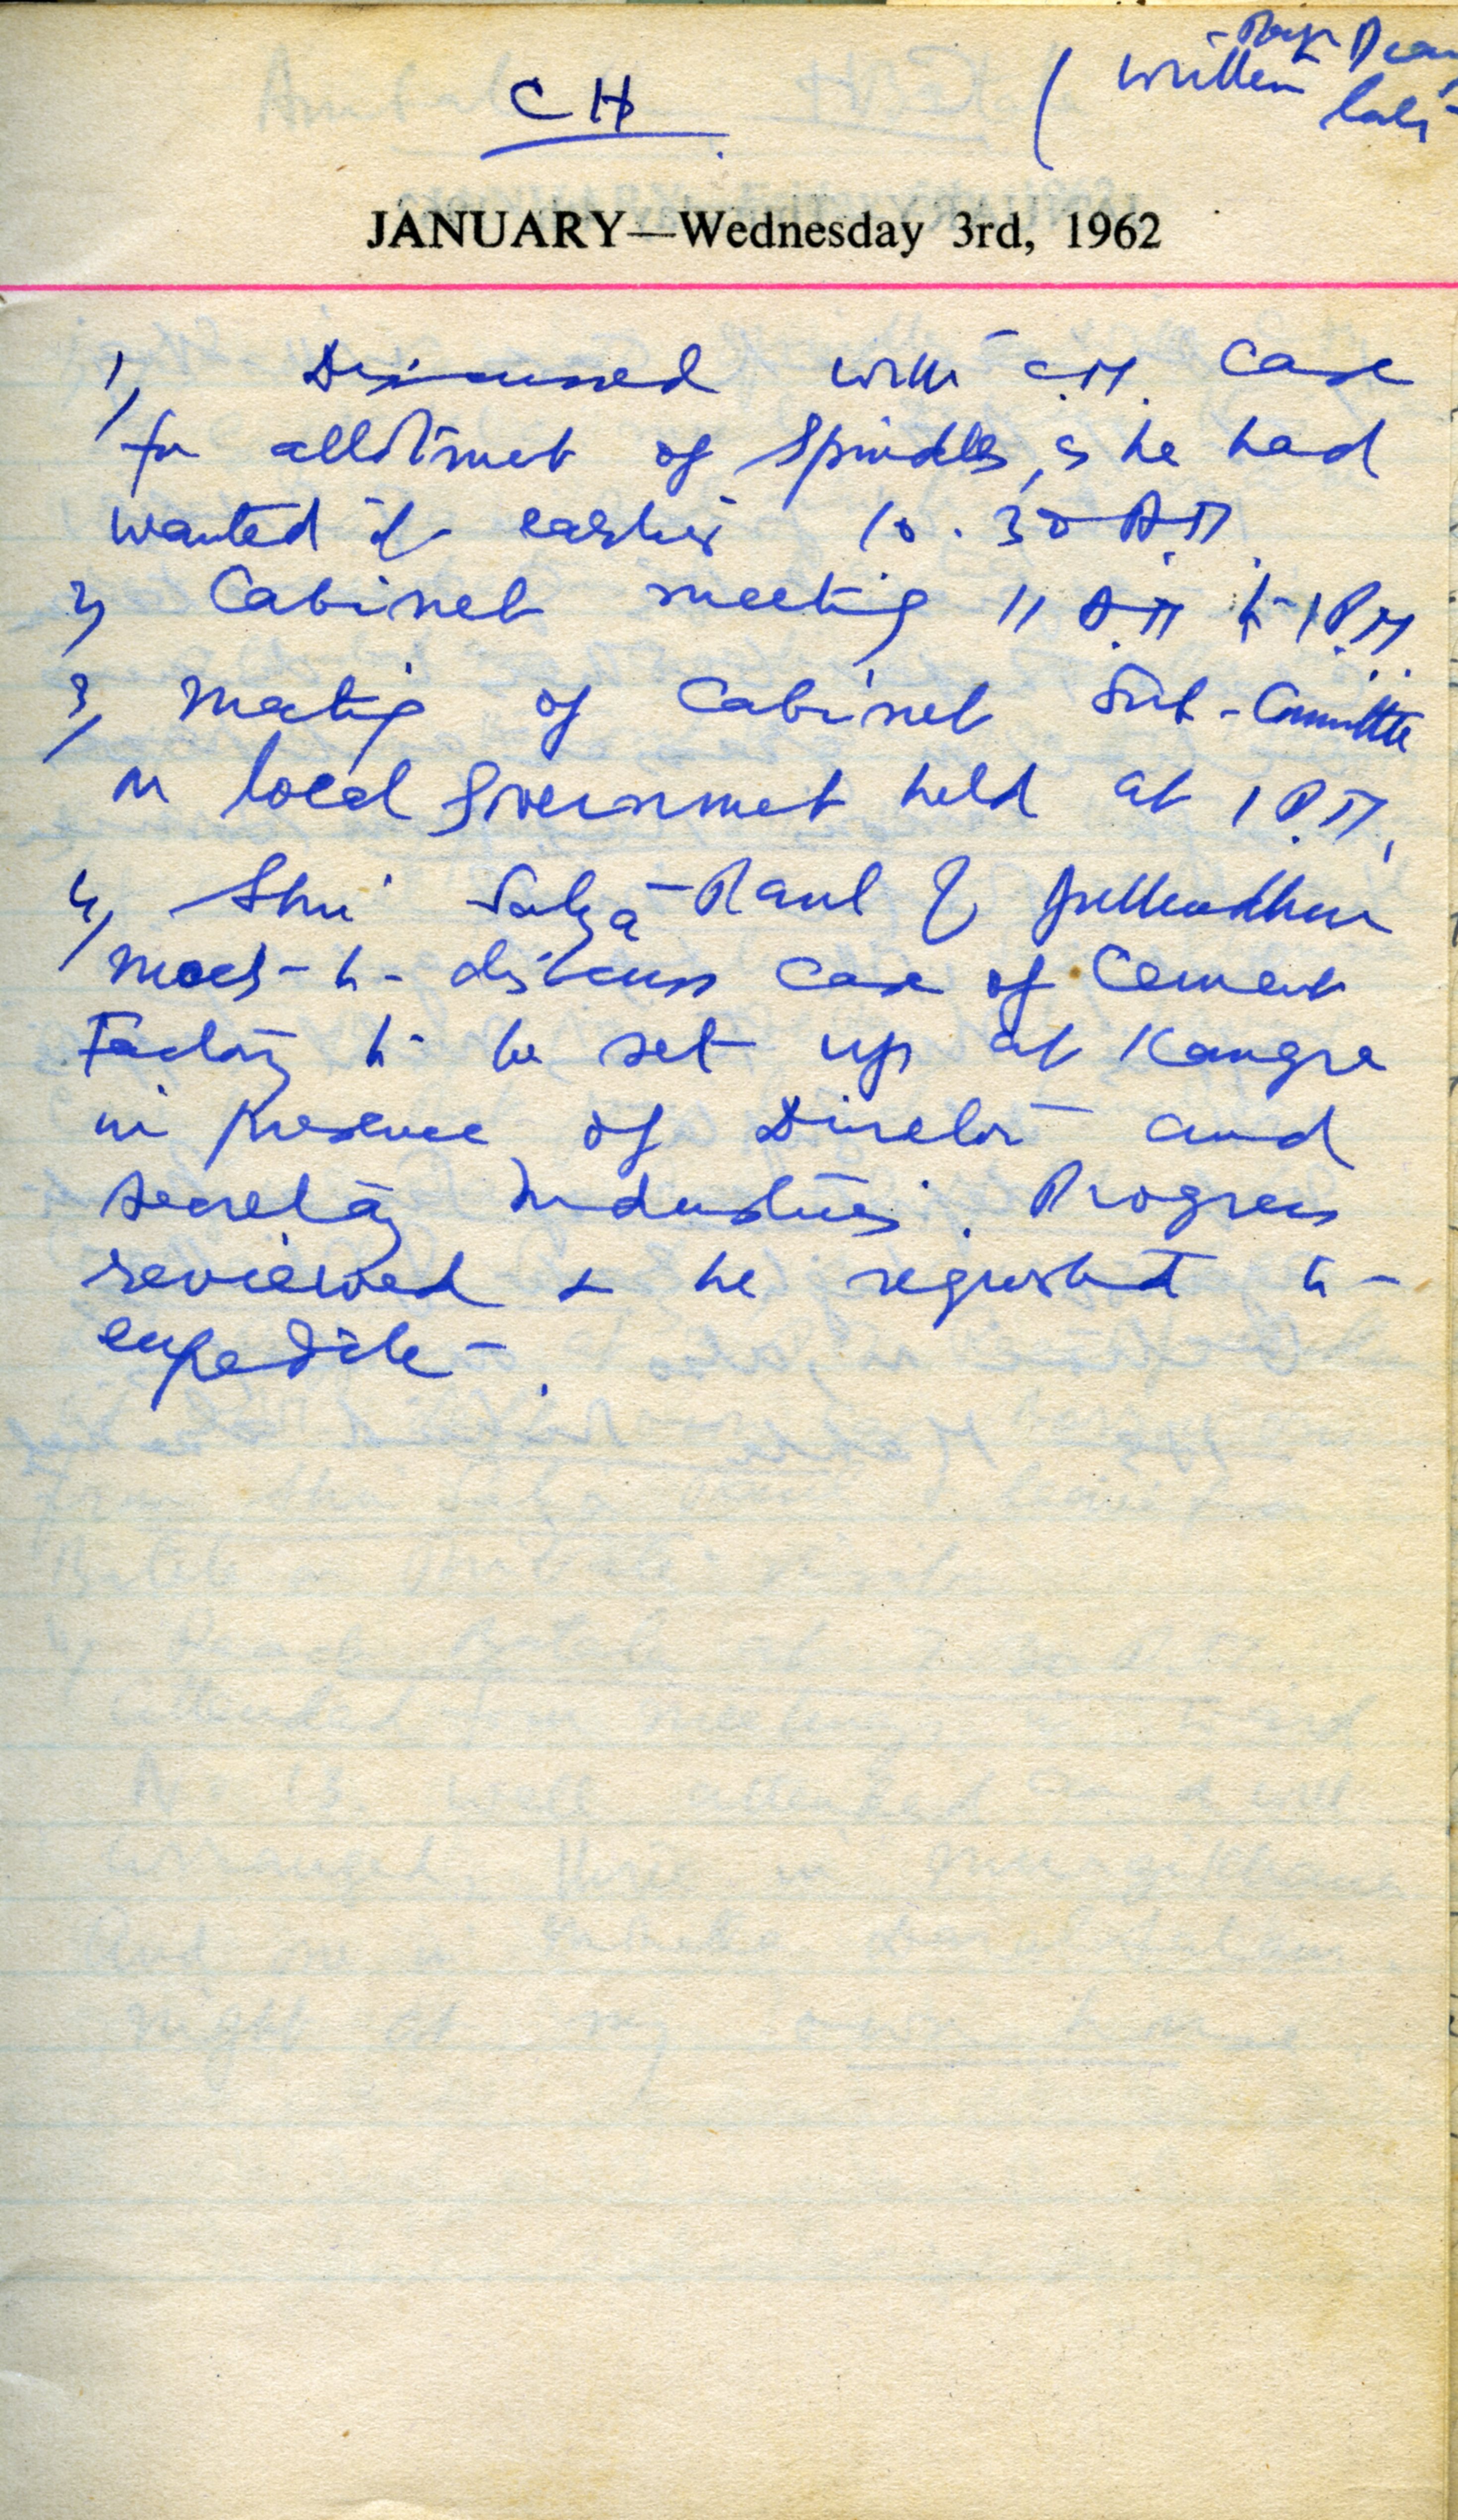 written
CH
JANUARY—Wednesday 3rd, 1962
1, Discussed with C.M. case
for allotment of spindles, as he had
wanted it earlier 10.30 A.M.
2, Cabinet meeting 11 A.M to 1 P.M.
3, Meeting of Cabinet Sub-Committee
on local Government held at 1 P.M.
4, Shri Satya Paul of Jullundhur
to discuss case of Cement
Factory to be set up at Kangra
in presence of Director and
Secretary Industries. Progress
reviewed & he requested to
expedite.